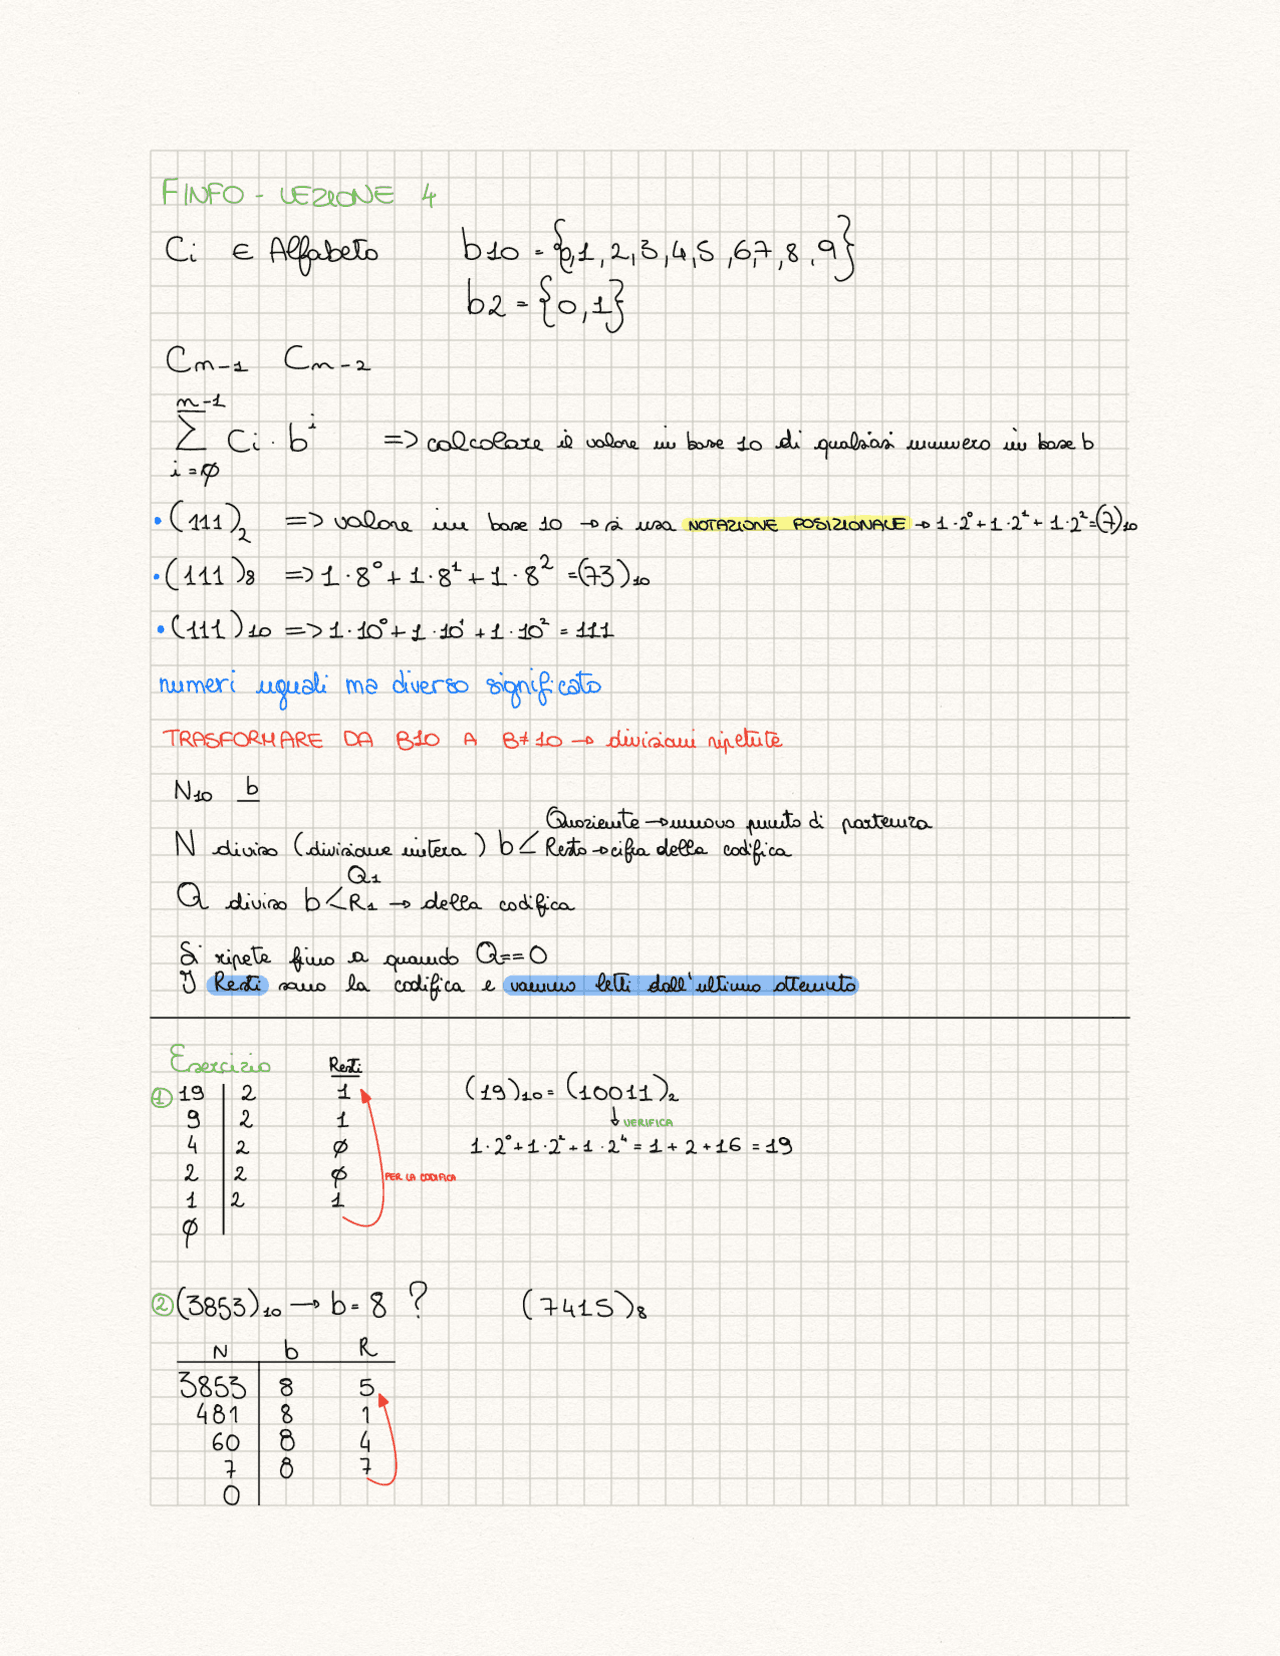 FINFO - LEZIONE 4
Ci ∈ Alfabeto b10 = {0,1,2,3,4,5,6,7,8,9}
b2 = {0,1}
Cn-1 Cn-2
n-1
∑ Ci · bⁱ => calcolare il valore in base 10 di qualsiasi numero in base b
i=∅
• (111)₂ => valore in base 10 → si usa NOTAZIONE POSIZIONALE → 1·2⁰+1·2¹+1·2²=(7)₁₀
• (111)₈ => 1·8⁰+1·8¹+1·8² =(73)₁₀
• (111)₁₀ => 1·10⁰+1·10¹+1·10² = 111
numeri uguali ma diverso significato
TRASFORMARE DA B10 A B≠10 → divisioni ripetute
N₁₀ b
Quoziente → nuovo punto di partenza
N diviso (divisione intera) b < Resto → cifra della codifica
Q₁
Q diviso b < R₁ → della codifica
Si ripete fino a quando Q==0
I Resti sono la codifica e vanno letti dall'ultimo ottenuto
Esercizio Resti
① 19 | 2 1 (19)₁₀ = (10011)₂
9 | 2 1 ↓ VERIFICA
4 | 2 ∅ 1·2⁰+1·2²+1·2⁴ = 1+2+16 = 19
2 | 2 ∅ PER LA CODIFICA
1 | 2 1
∅
② (3853)₁₀ → b=8 ? (7415)₈
N b R
3853 8 5
481 8 1
60 8 4
7 8 7
0